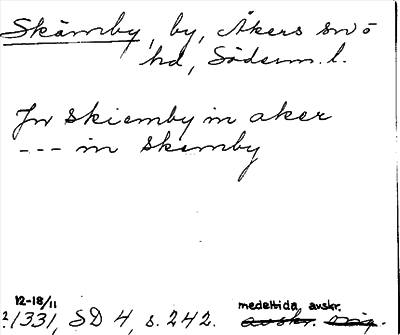 Skämby, by, Åkers sn ö
hd, Söderm. l.
Jn Skiemby in aker
--- in Skemby
12-18/11
?1331, SD 4, s. 242. medeltida avskr.
avskr. orig.